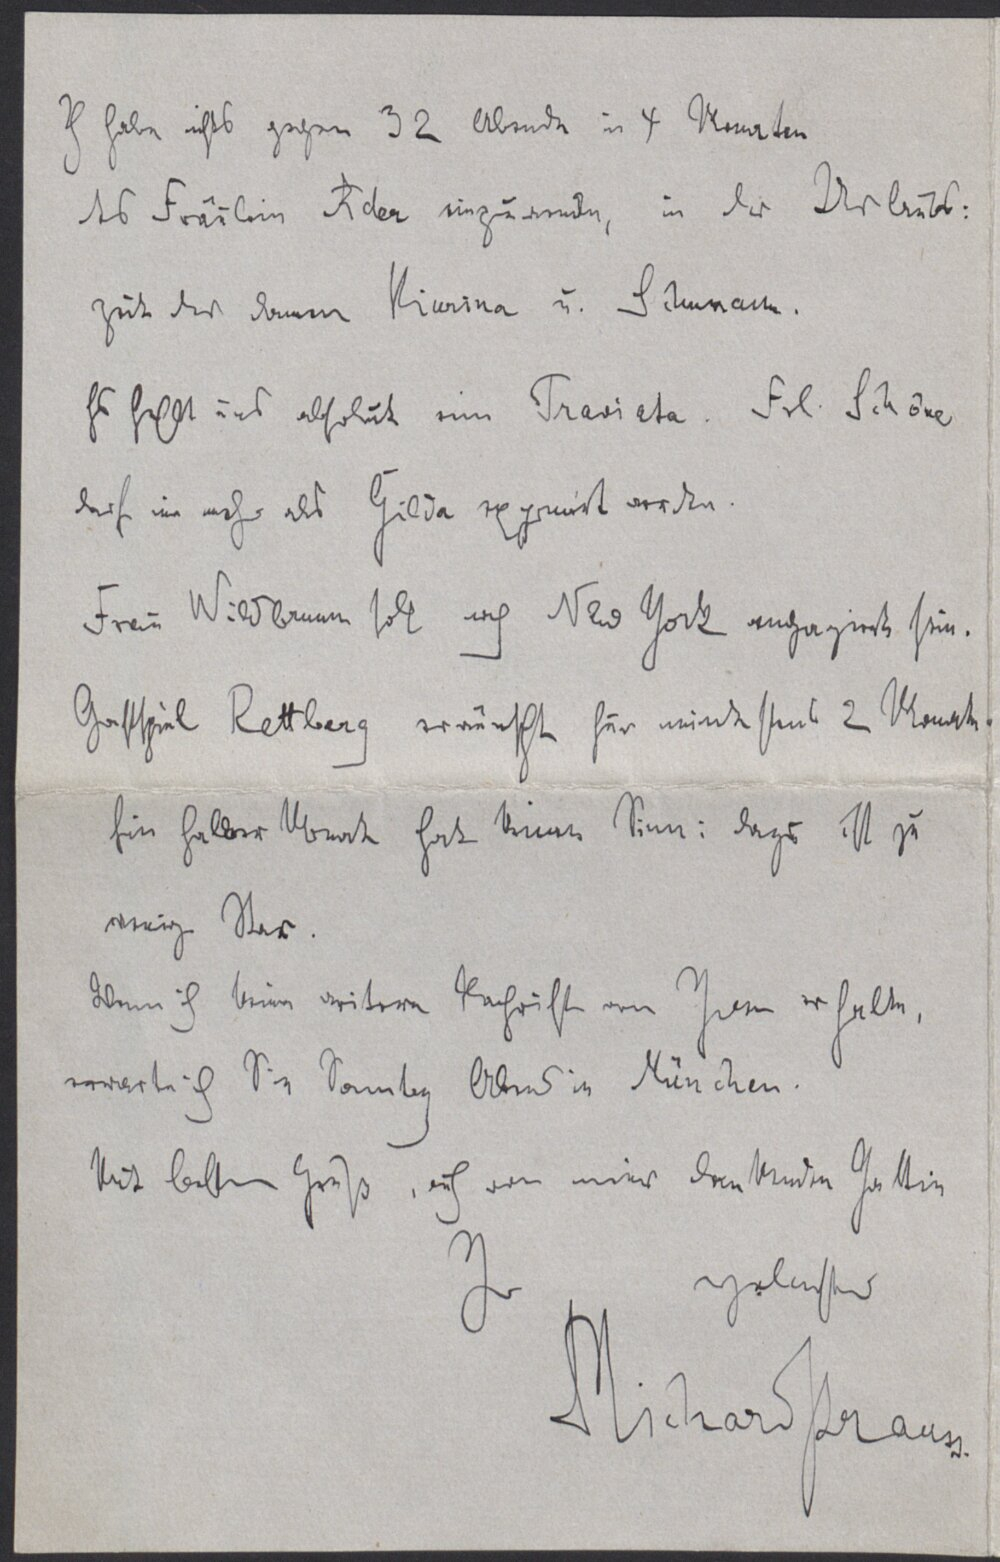 Ich habe nichts gegen 32 Abende in 4 Monaten
des Fräulein Ader einzuwenden, in der Urlaubs:
zeit der Damen Kiurina u. Schumann.
Es fehlt uns absolut eine Traviata. Frl. Schöne
darf nie mehr als Gilda exponirt werden.
Frau Wildbrunn soll nach New York engagiert sein.
Gastspiel Rettberg erwünscht für mindestens 2 Monate.
Ein halber Monat hat keinen Sinn: dazu ist zu
wenig Star.
Wenn ich keine weitere Nachricht von Ihnen erhalte,
erwarte ich Sie Sonntag Abend in München.
Mit besten Gruß, auch von meiner dankenden Gattin
Ihr ergebenster
Richard Strauss.